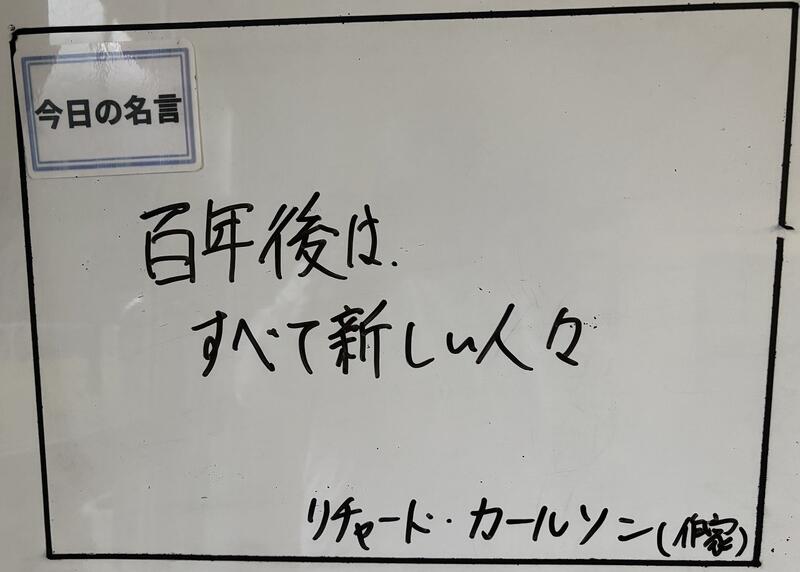 今日の名言
百年後は、
すべて新しい人々
リチャード・カールソン(作家)